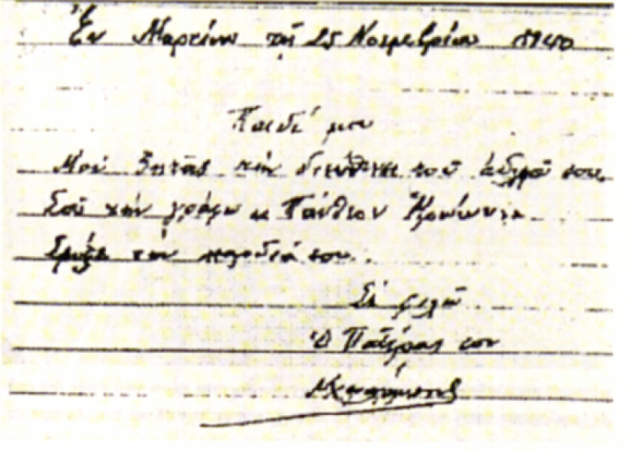 Ἐν Μαρτίνω τῇ 25 Νοεμβρίου 1940
Παιδί μου
Μοῦ ζητᾶς τὴν διεύθυνσι τοῦ ἀδελφοῦ σου.
Σοῦ τὴν γράφω « Πάνθεον Ἡρώων »
Σφίξε τὴν καρδιά σου.
Σὲ φιλῶ
Ὁ Πατέρας σου